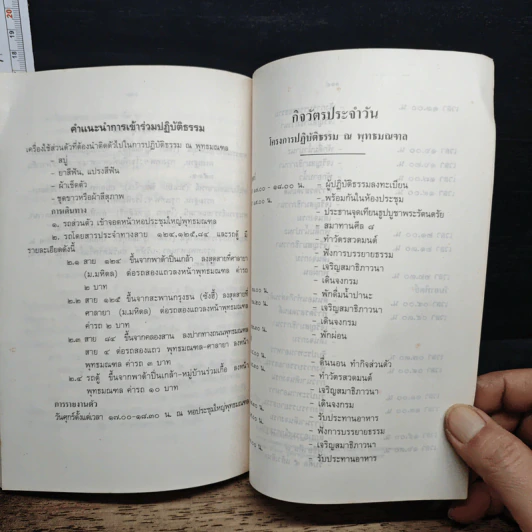 คำแนะนำการเข้าร่วมปฏิบัติธรรม
เครื่องใช้ส่วนตัวที่ต้องนำติดตัวไปในการปฏิบัติธรรม ณ พุทธมณฑล
สบู่
- ยาสีฟัน, แปรงสีฟัน
- ผ้าเช็ดตัว
- ชุดขาวหรือผ้าสีสุภาพ
การเดินทาง
๑. รถส่วนตัว เข้าจอดหน้าหอประชุมใหญ่พุทธมณฑล
๒. รถโดยสารประจำทางสาย ๑๒๔,๑๒๕,๘๔ และรถตู้ มี
รายละเอียดดังนี้
๒.๑ สาย ๑๒๔ ขึ้นจากพาต้าปิ่นเกล้า ลงสุดสายที่ศาลายา
(ม.มหิดล) ต่อรถสองแถวลงหน้าพุทธมณฑล ค่ารถ
๒ บาท
๒.๒ สาย ๑๒๕ ขึ้นจากสะพานกรุงธน (ซังฮี้) ลงสุดสายที่
ศาลายา (ม.มหิดล) ต่อรถสองแถวลงหน้าพุทธมณฑล
ค่ารถ ๒ บาท
๒.๓ สาย ๘๔ ขึ้นจากคลองสาน ลงปากทางถนนพุทธมณฑล
สาย ๔ ต่อรถสองแถว พุทธมณฑล-ศาลายา ลงหน้า
พุทธมณฑล ค่ารถ ๓ บาท
๒.๔ รถตู้ ขึ้นจากพาต้าปิ่นเกล้า-หมู่บ้านร่วมเกื้อ ลงหน้า
พุทธมณฑล ค่ารถ ๑๐ บาท
การรายงานตัว
วันศุกร์ตั้งแต่เวลา ๑๗.๐๐-๑๘.๓๐ น. ณ หอประชุมใหญ่พุทธมณฑล
กิจวัตรประจำวัน
โครงการปฏิบัติธรรม ณ พุทธมณฑล
- ผู้ปฏิบัติธรรมลงทะเบียน
- พร้อมกันในห้องประชุม
- ประธานจุดเทียนธูปบูชาพระรัตนตรัย
- สมาทานศีล ๘
- ทำวัตรสวดมนต์
- ฟังการบรรยายธรรม
- เจริญสมาธิภาวนา
- เดินจงกรม
- พักดื่มน้ำปานะ
- เจริญสมาธิภาวนา
- เดินจงกรม
- พักผ่อน
- ตื่นนอน ทำกิจส่วนตัว
- ทำวัตรสวดมนต์
- เจริญสมาธิภาวนา
- เดินจงกรม
- รับประทานอาหาร
- ฟังการบรรยายธรรม
- เจริญสมาธิภาวนา
- รับประทานอาหาร